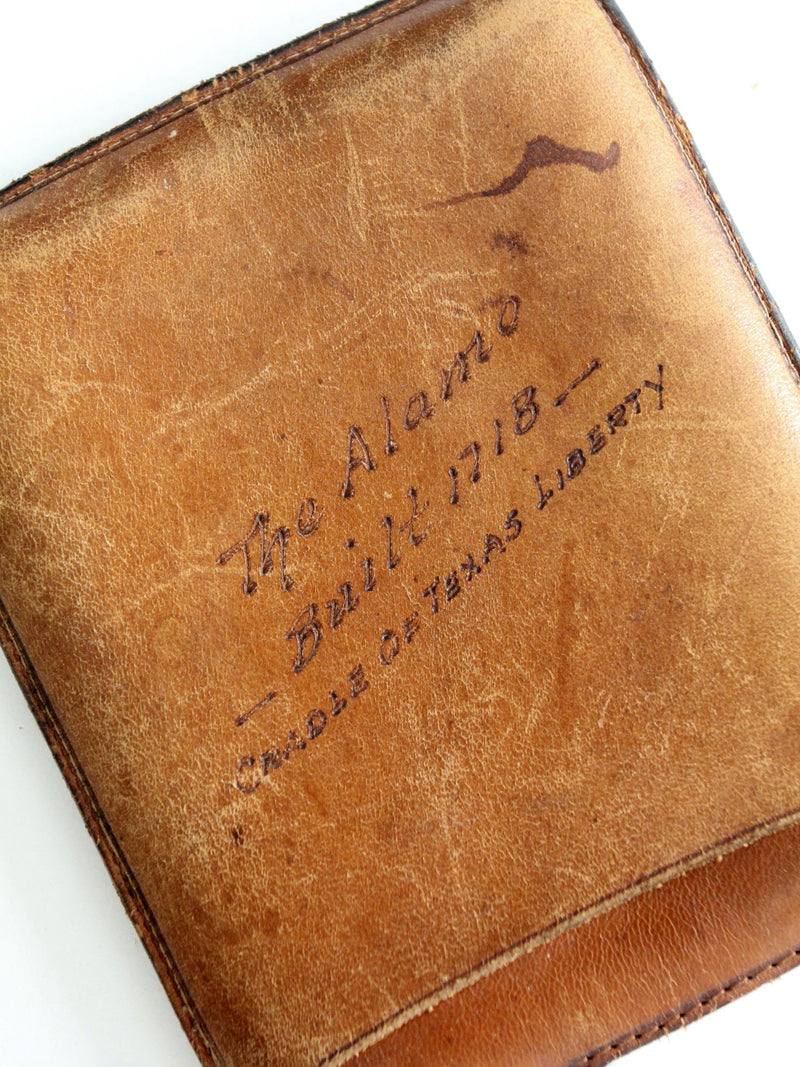 The Alamo
— Built 1718 —
CRADLE OF TEXAS LIBERTY